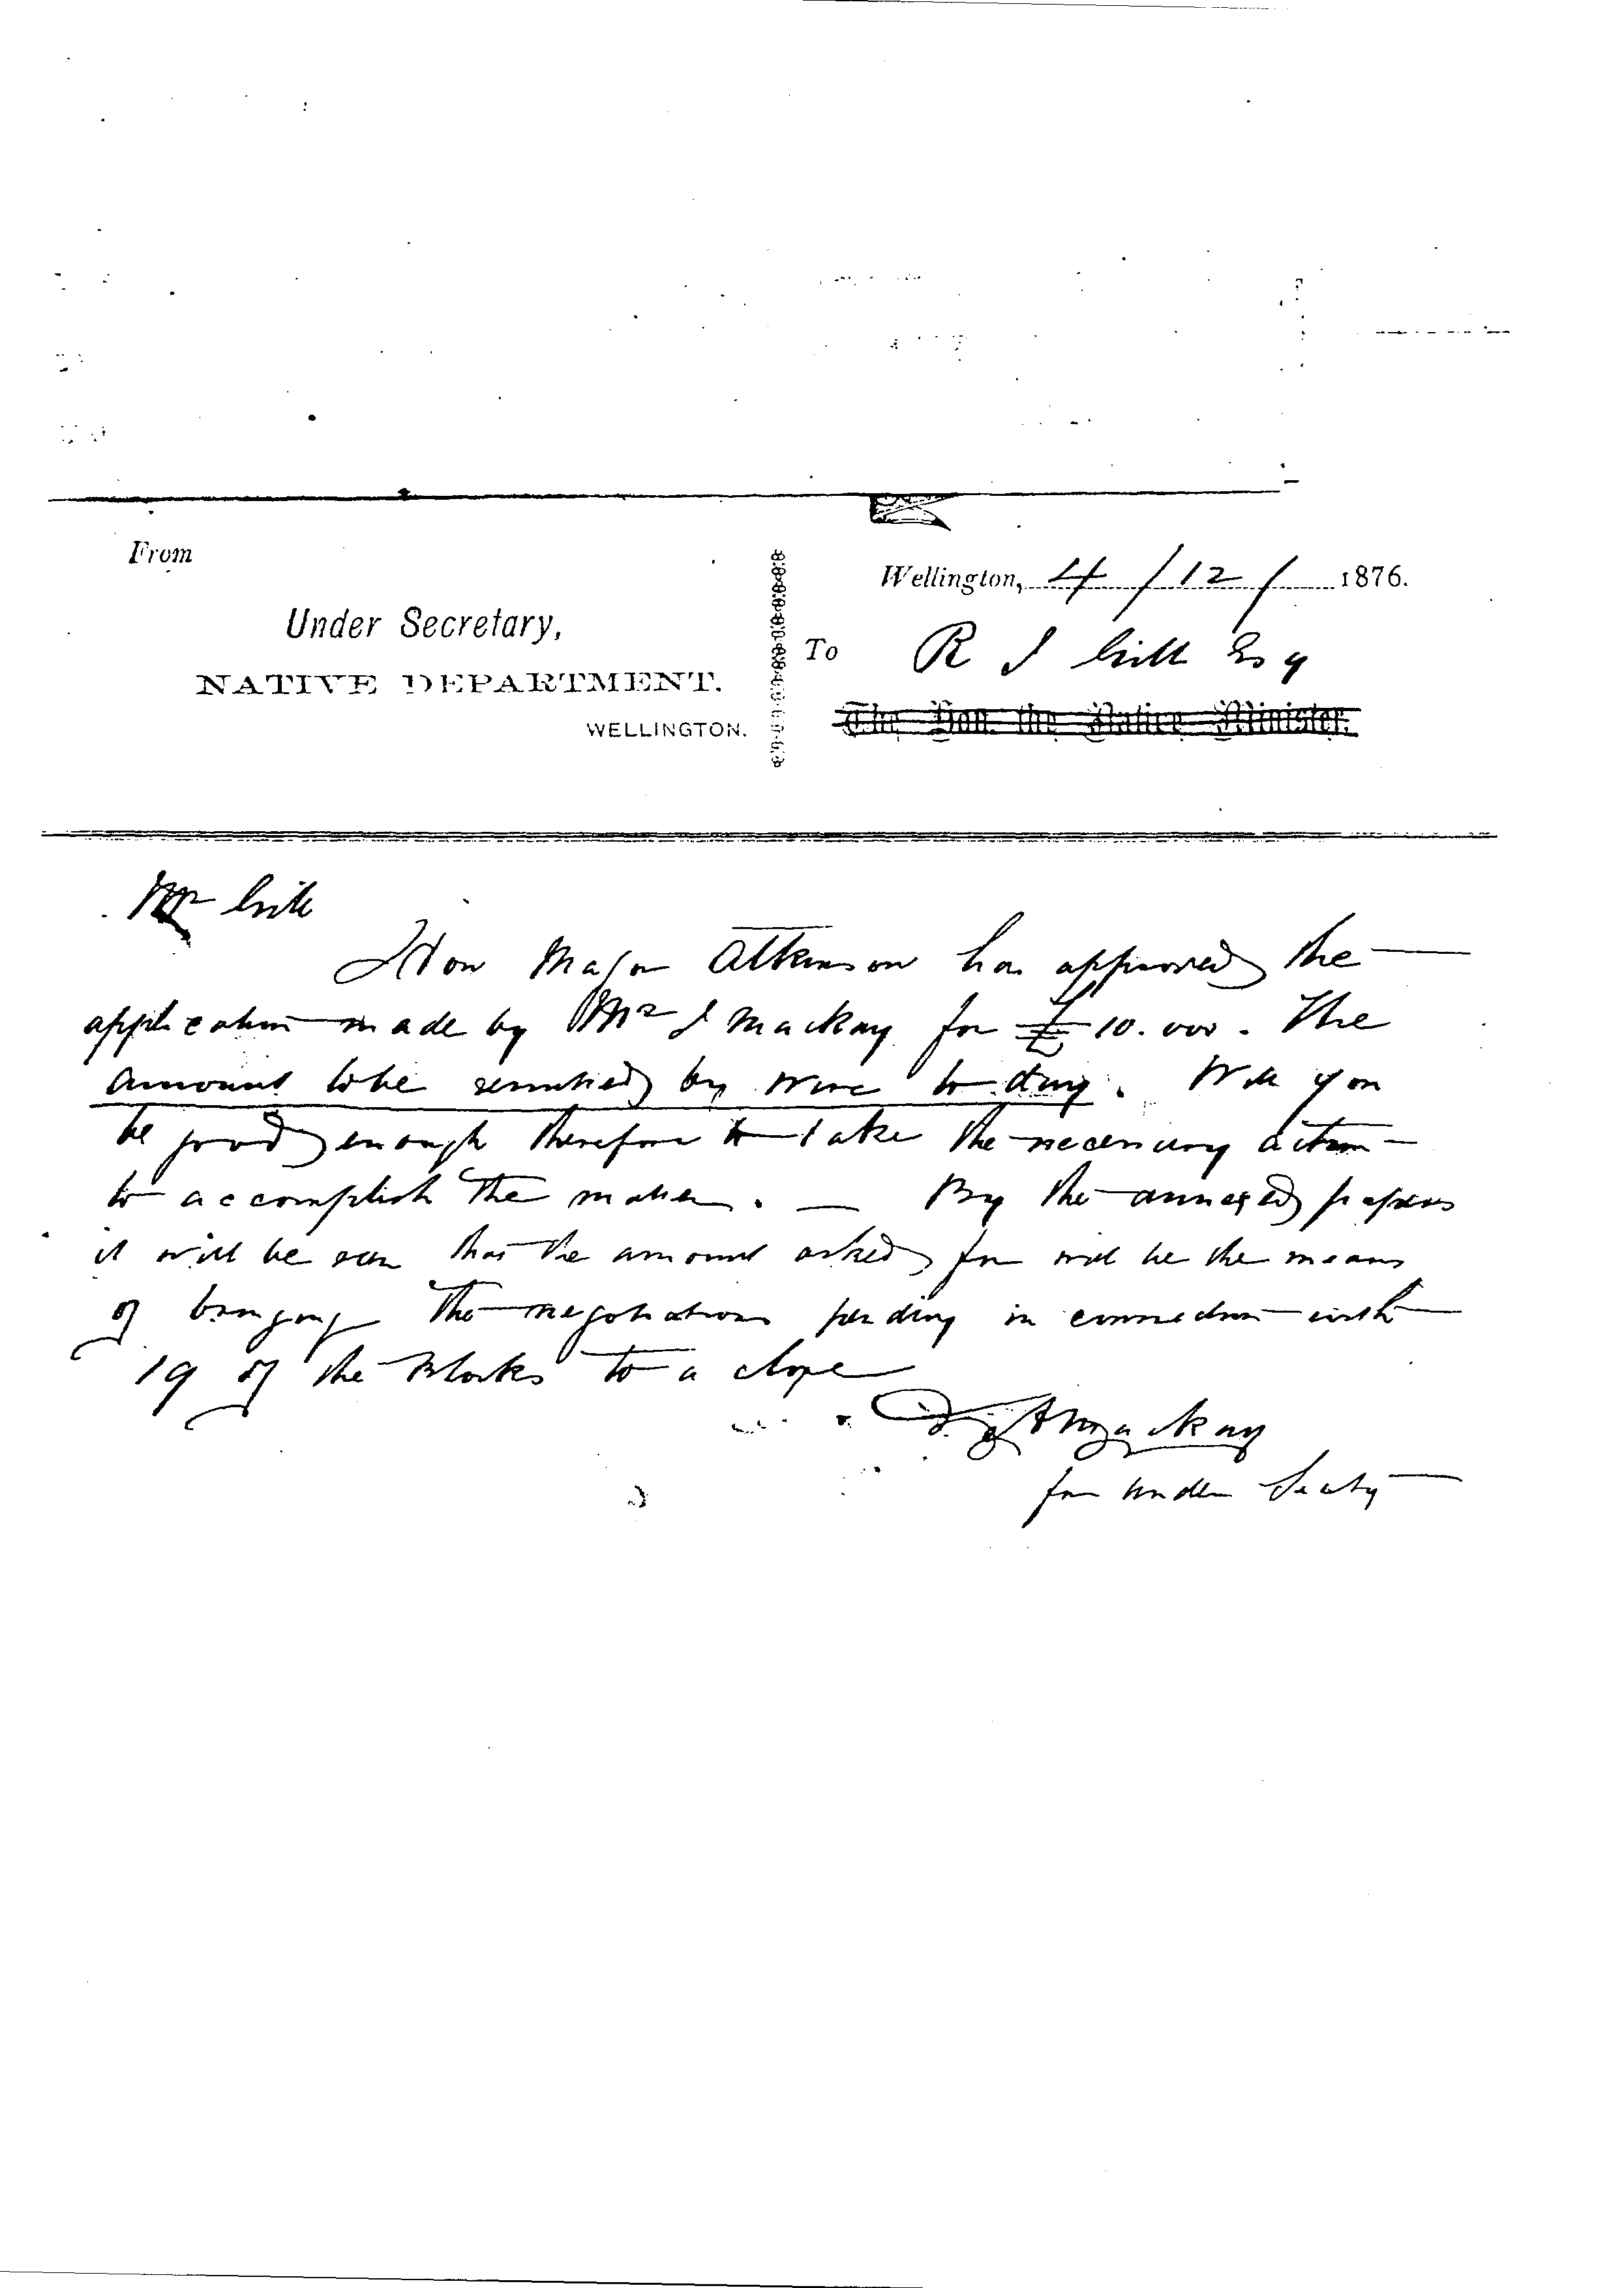 From
Wellington, 4/12/1876.
Under Secretary,
To R J Gill Esq
NATIVE DEPARTMENT.
WELLINGTON.
The Hon. the Native Minister.
Mr Gill
Hon Major Atkinson has approved the
application made by Mr J Mackay for £10.000. The
amount to be remitted by wire to day. Will you
be good enough therefore to take the necessary action
to accomplish the matter. — By the annexed papers
it will be seen that the amount asked for will be the means
of bringing the negotiations pending in connection with
19 of the Blocks to a close
Mackay
for Under Secty